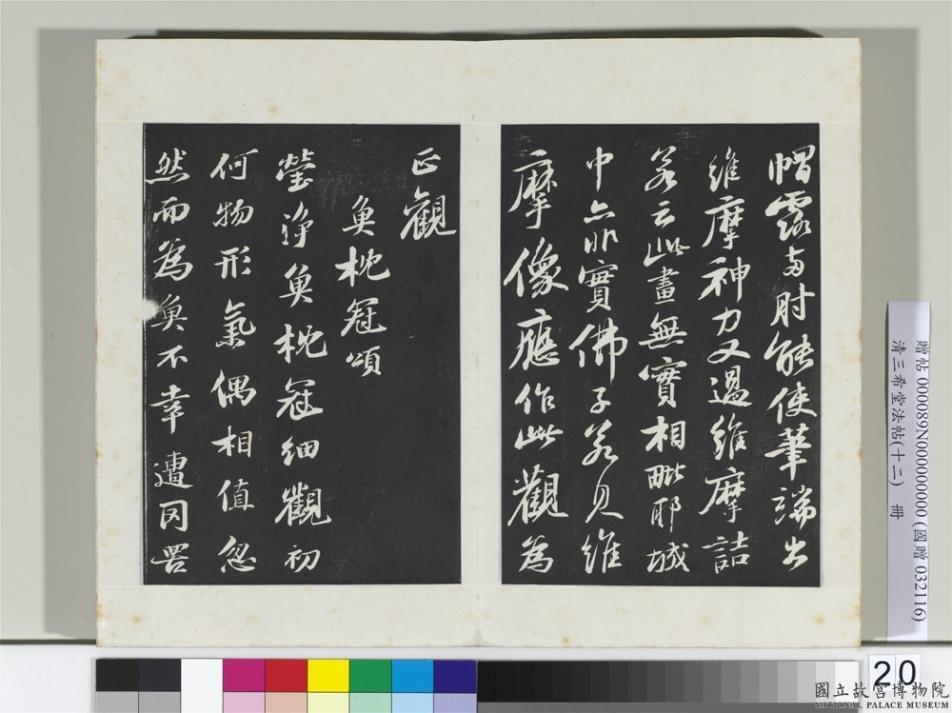 帽露兩肘能使筆端出
維摩神力又過維摩詰
若云此畫無實相毗耶城
中亦非實佛子若見維
摩像應作此觀為
正觀
魚枕冠頌
瑩淨魚枕冠細觀初
何物形氣偶相值忽
然而為魚不幸遭罔罟
贈帖 000089N000000000 (國贈 032116)
清三希堂法帖(十二) 冊
20
國立故宮博物院
NATIONAL PALACE MUSEUM